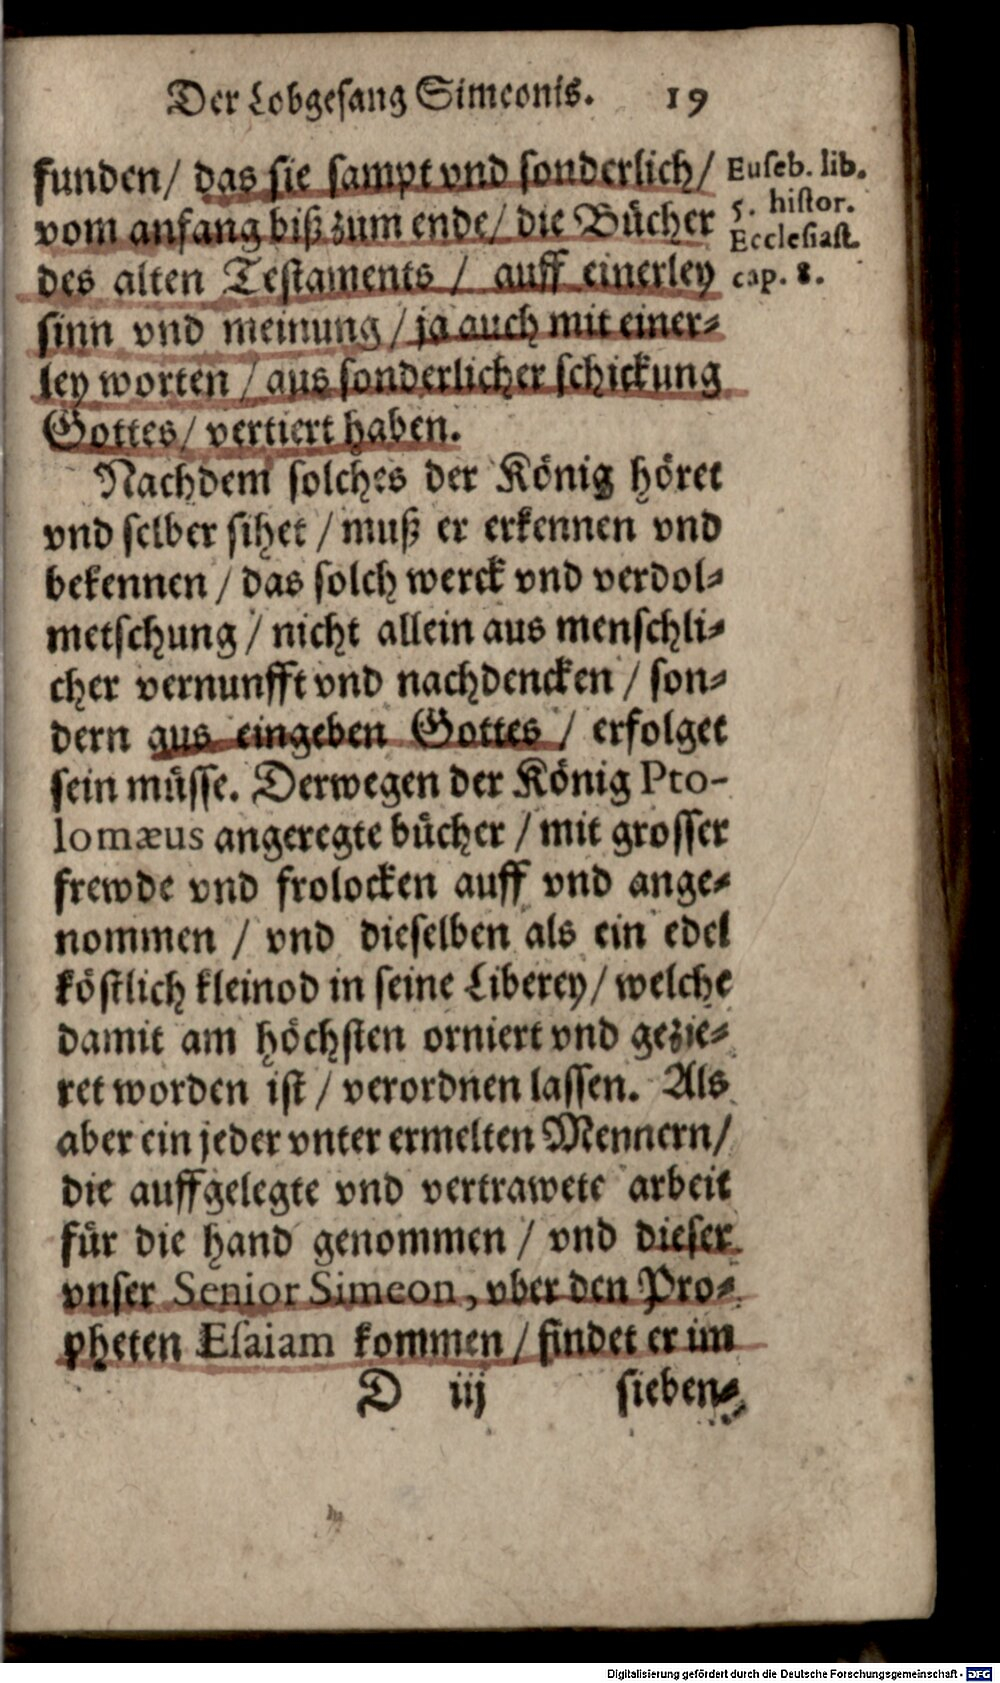 Der Lobgesang Simeonis. 19
funden / das sie sampt vnd sonderlich /
vom anfang biß zum ende / die Bücher
des alten Testaments / auff einerley
sinn vnd meinung / ja auch mit einer⸗
ley worten / aus sonderlicher schickung
Gottes / vertiert haben.
Euseb. lib.
5. histor.
Ecclesiast.
cap. 8.
Nachdem solches der König höret
vnd selber sihet / muß er erkennen vnd
bekennen / das solch werck vnd verdol⸗
metschung / nicht allein aus menschli⸗
cher vernunfft vnd nachdencken / son⸗
dern aus eingeben Gottes / erfolget
sein müsse. Derwegen der König Pto-
lomæus angeregte bücher / mit grosser
frewde vnd frolocken auff vnd ange⸗
nommen / vnd dieselben als ein edel
köstlich kleinod in seine Liberey / welche
damit am höchsten orniert vnd gezie⸗
ret worden ist / verordnen lassen. Als
aber ein jeder vnter ermelten Mennern /
die auffgelegte vnd vertrawete arbeit
für die hand genommen / vnd dieser
vnser Senior Simeon, vber den Pro⸗
pheten Esaiam kommen / findet er im
D iij sieben⸗
Digitalisierung gefördert durch die Deutsche Forschungsgemeinschaft - DFG